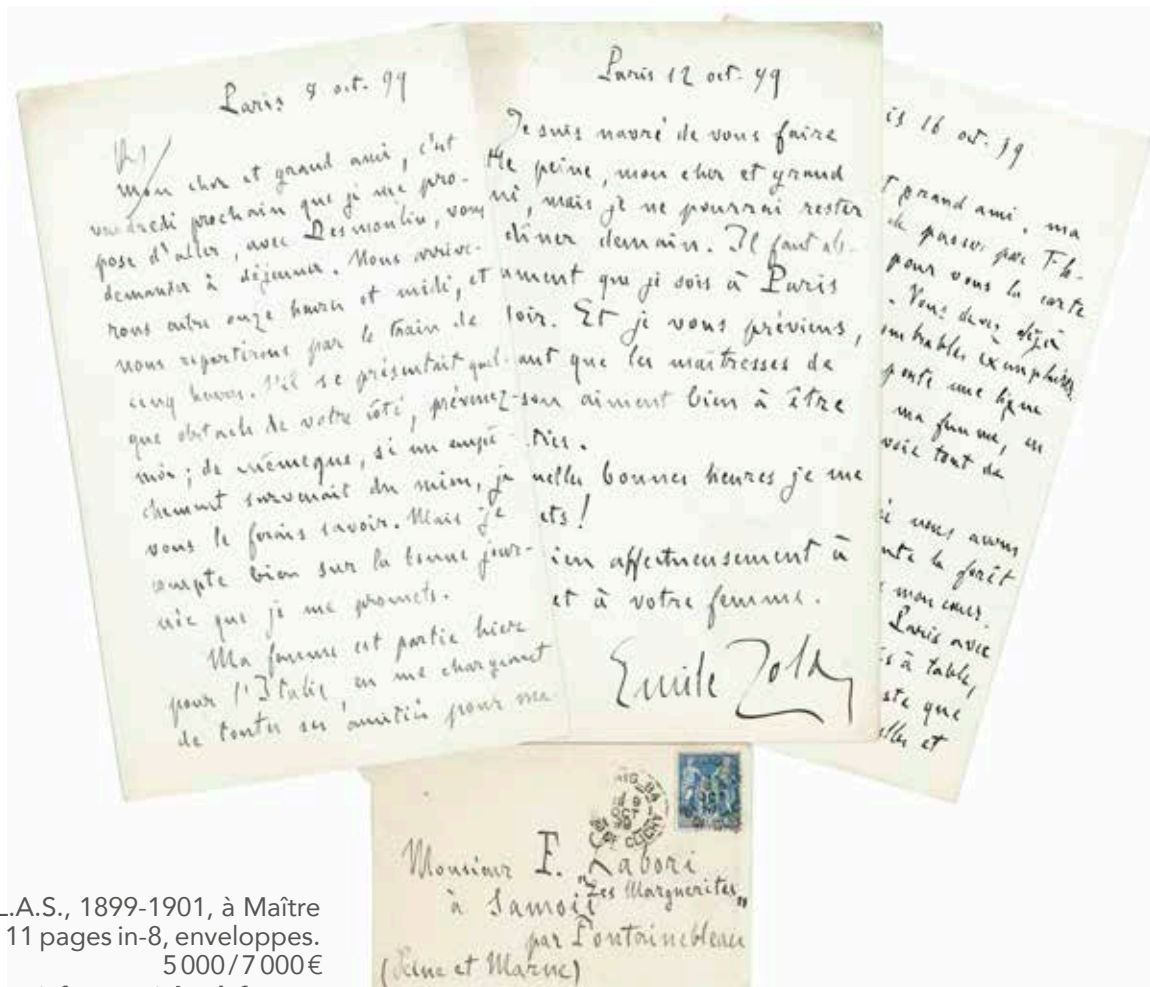 Paris 8 oct. 99
Mon cher et grand ami, c'est
vendredi prochain que je me pro-
pose d'aller, avec Desmoulin, vous
demander à déjeuner. Nous arrive-
rons entre onze heures et midi, et
nous repartirons par le train de
cinq heures. S'il se présentait quel-
que obstacle de votre côté, prévenez-
moi ; de même que, si un empê-
chement survenait du mien, je
vous le ferais savoir. Mais je
compte bien sur la bonne jour-
née que je me promets.
Ma femme est partie hier
pour l'Italie, en me chargeant
de toutes ses amitiés pour ma-
Paris 12 oct. 99
Je suis navré de vous faire
tte peine, mon cher et grand
mi, mais je ne pourrai rester
dîner demain. Il faut ab-
ument que je sois à Paris
soir. Et je vous préviens,
ant que les maîtresses de
son aiment bien à être
ties.
uelles bonnes heures je me
ets !
ien affectueusement à
et à votre femme.
Emile Zola
is 16 oct. 99
t grand ami, ma
de passer par Th-
pour vous la carte
. Vous devez déjà
mblables exemplaires
porte une ligne
ma femme, en
voie tout de
nous avons
nte la forêt
mon cœur.
Paris avec
s à table,
ste que
elles et
CLICHY
Monsieur F. Labori
"Les Marguerites"
à Samois
par Fontainebleau
(Seine et Marne)
L.A.S., 1899-1901, à Maître
11 pages in-8, enveloppes.
5 000 / 7 000 €